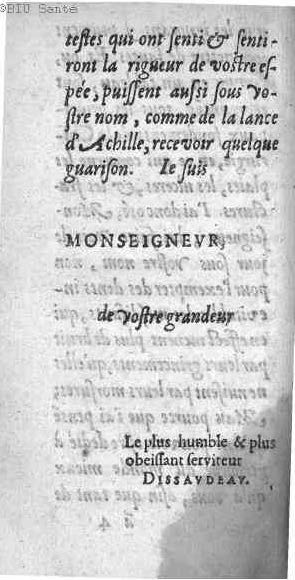 ©BIU Santé
testes qui ont senti & senti-
ront la rigueur de vostre es-
pée, puissent aussi sous vo-
stre nom, comme de la lance
d'Achille, recevoir quelque
guarison. Ie suis
MONSEIGNEVR,
de vostre grandeur
Le plus humble & plus
obeissant serviteur
DISSAVDEAV.